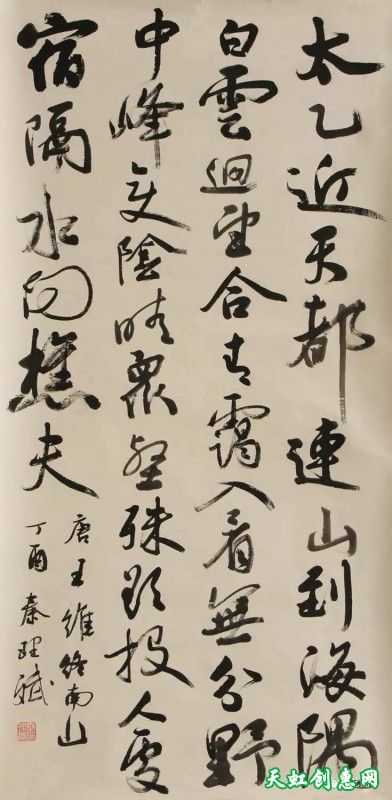 太乙近天都連山到海隅
白雲迴望合青靄入看無分野
中峰變陰晴衆壑殊欲投人處
宿隔水问樵夫
唐王維終南山
丁酉秦理斌
天虹创惠网